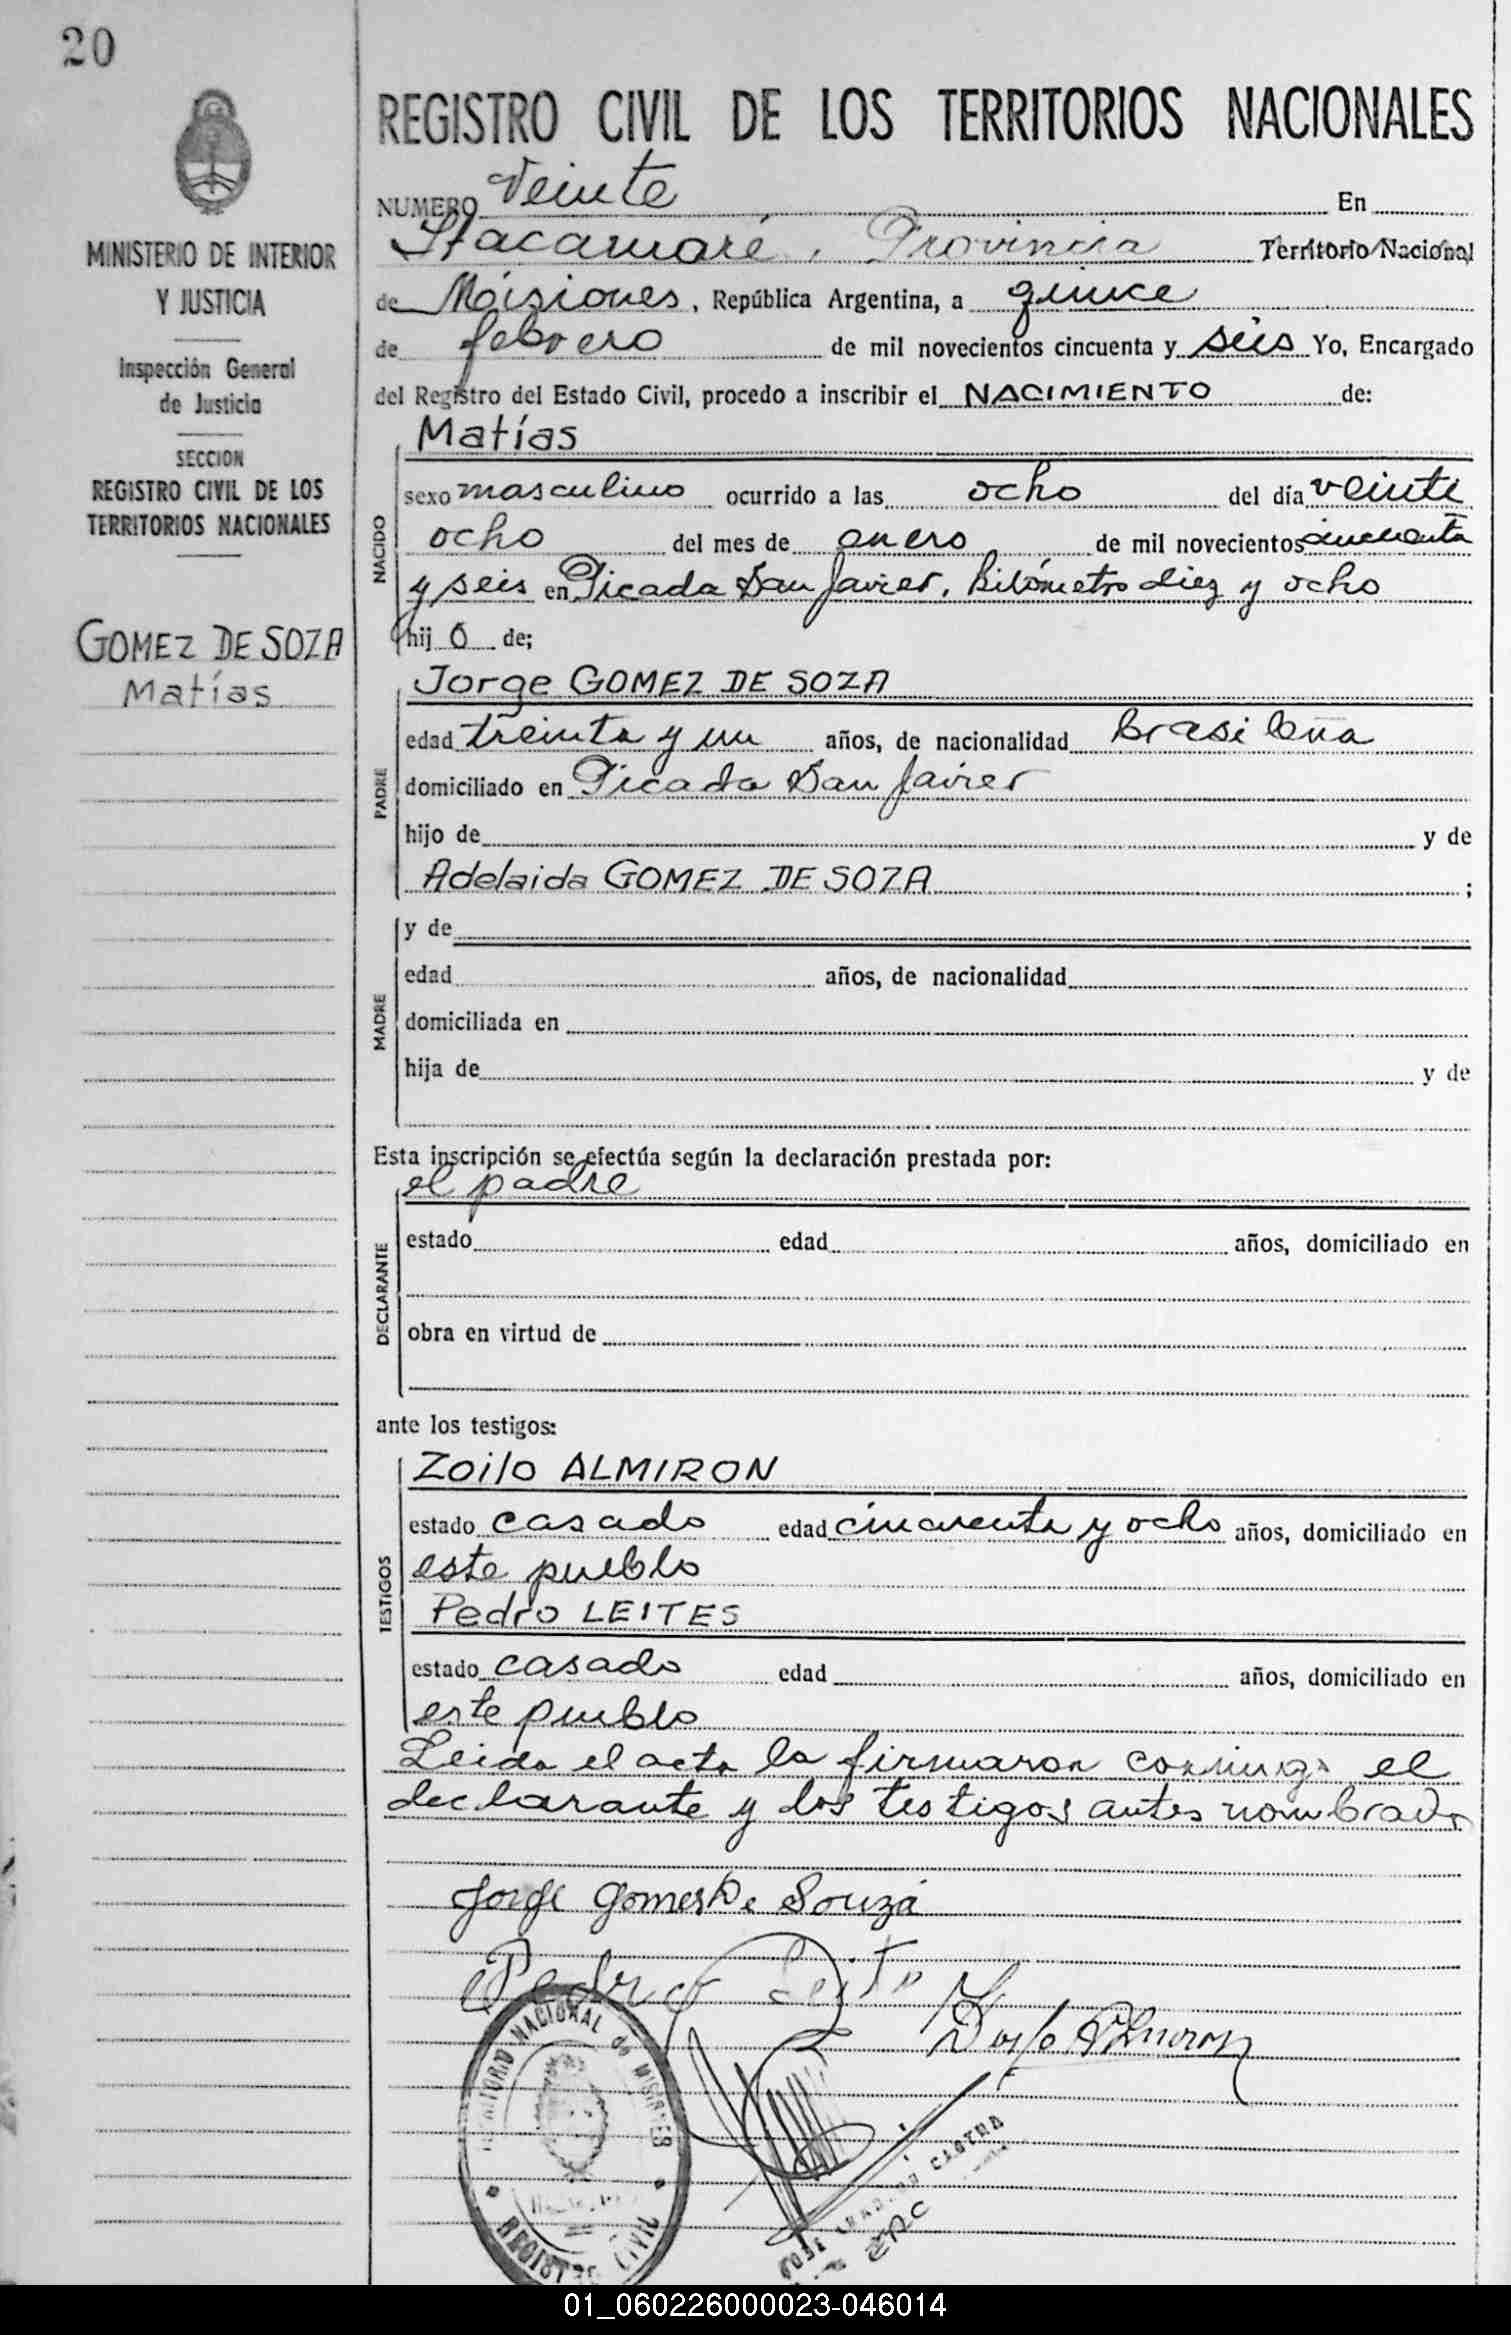 20
MINISTERIO DE INTERIOR
Y JUSTICIA
Inspección General
de Justicia
SECCION
REGISTRO CIVIL DE LOS
TERRITORIOS NACIONALES
GOMEZ DE SOZA
Matías
REGISTRO CIVIL DE LOS TERRITORIOS NACIONALES
NUMERO Veinte En
Itacaruaré, Provincia Territorio Nacional
de Misiones, República Argentina, a quince
de febrero de mil novecientos cincuenta y seis Yo, Encargado
del Registro del Estado Civil, procedo a inscribir el NACIMIENTO de:
NACIDO
Matías
sexo masculino ocurrido a las ocho del día veinte
ocho del mes de enero de mil novecientos cincuenta
y seis en Picada San Javier, kilómetro diez y ocho
hij o de;
PADRE
Jorge GOMEZ DE SOZA
edad treinta y un años, de nacionalidad brasileña
domiciliado en Picada San Javier
hijo de y de
Adelaida GOMEZ DE SOZA ;
MADRE
y de
edad años, de nacionalidad
domiciliada en
hija de y de
Esta inscripción se efectúa según la declaración prestada por:
DECLARANTE
el padre
estado edad años, domiciliado en
obra en virtud de
ante los testigos:
TESTIGOS
Zoilo ALMIRON
estado casado edad cincuenta y ocho años, domiciliado en
este pueblo
Pedro LEITES
estado casado edad años, domiciliado en
este pueblo
Leida el acta la firmaron conmigo el
declarante y los testigos antes nombrado
Jorge Gomes De Souza
Pedro
TERRITORIO NACIONAL de MISIONES
REGISTRO CIVIL
JOSE CASTRO
ERC
01_060226000023-046014